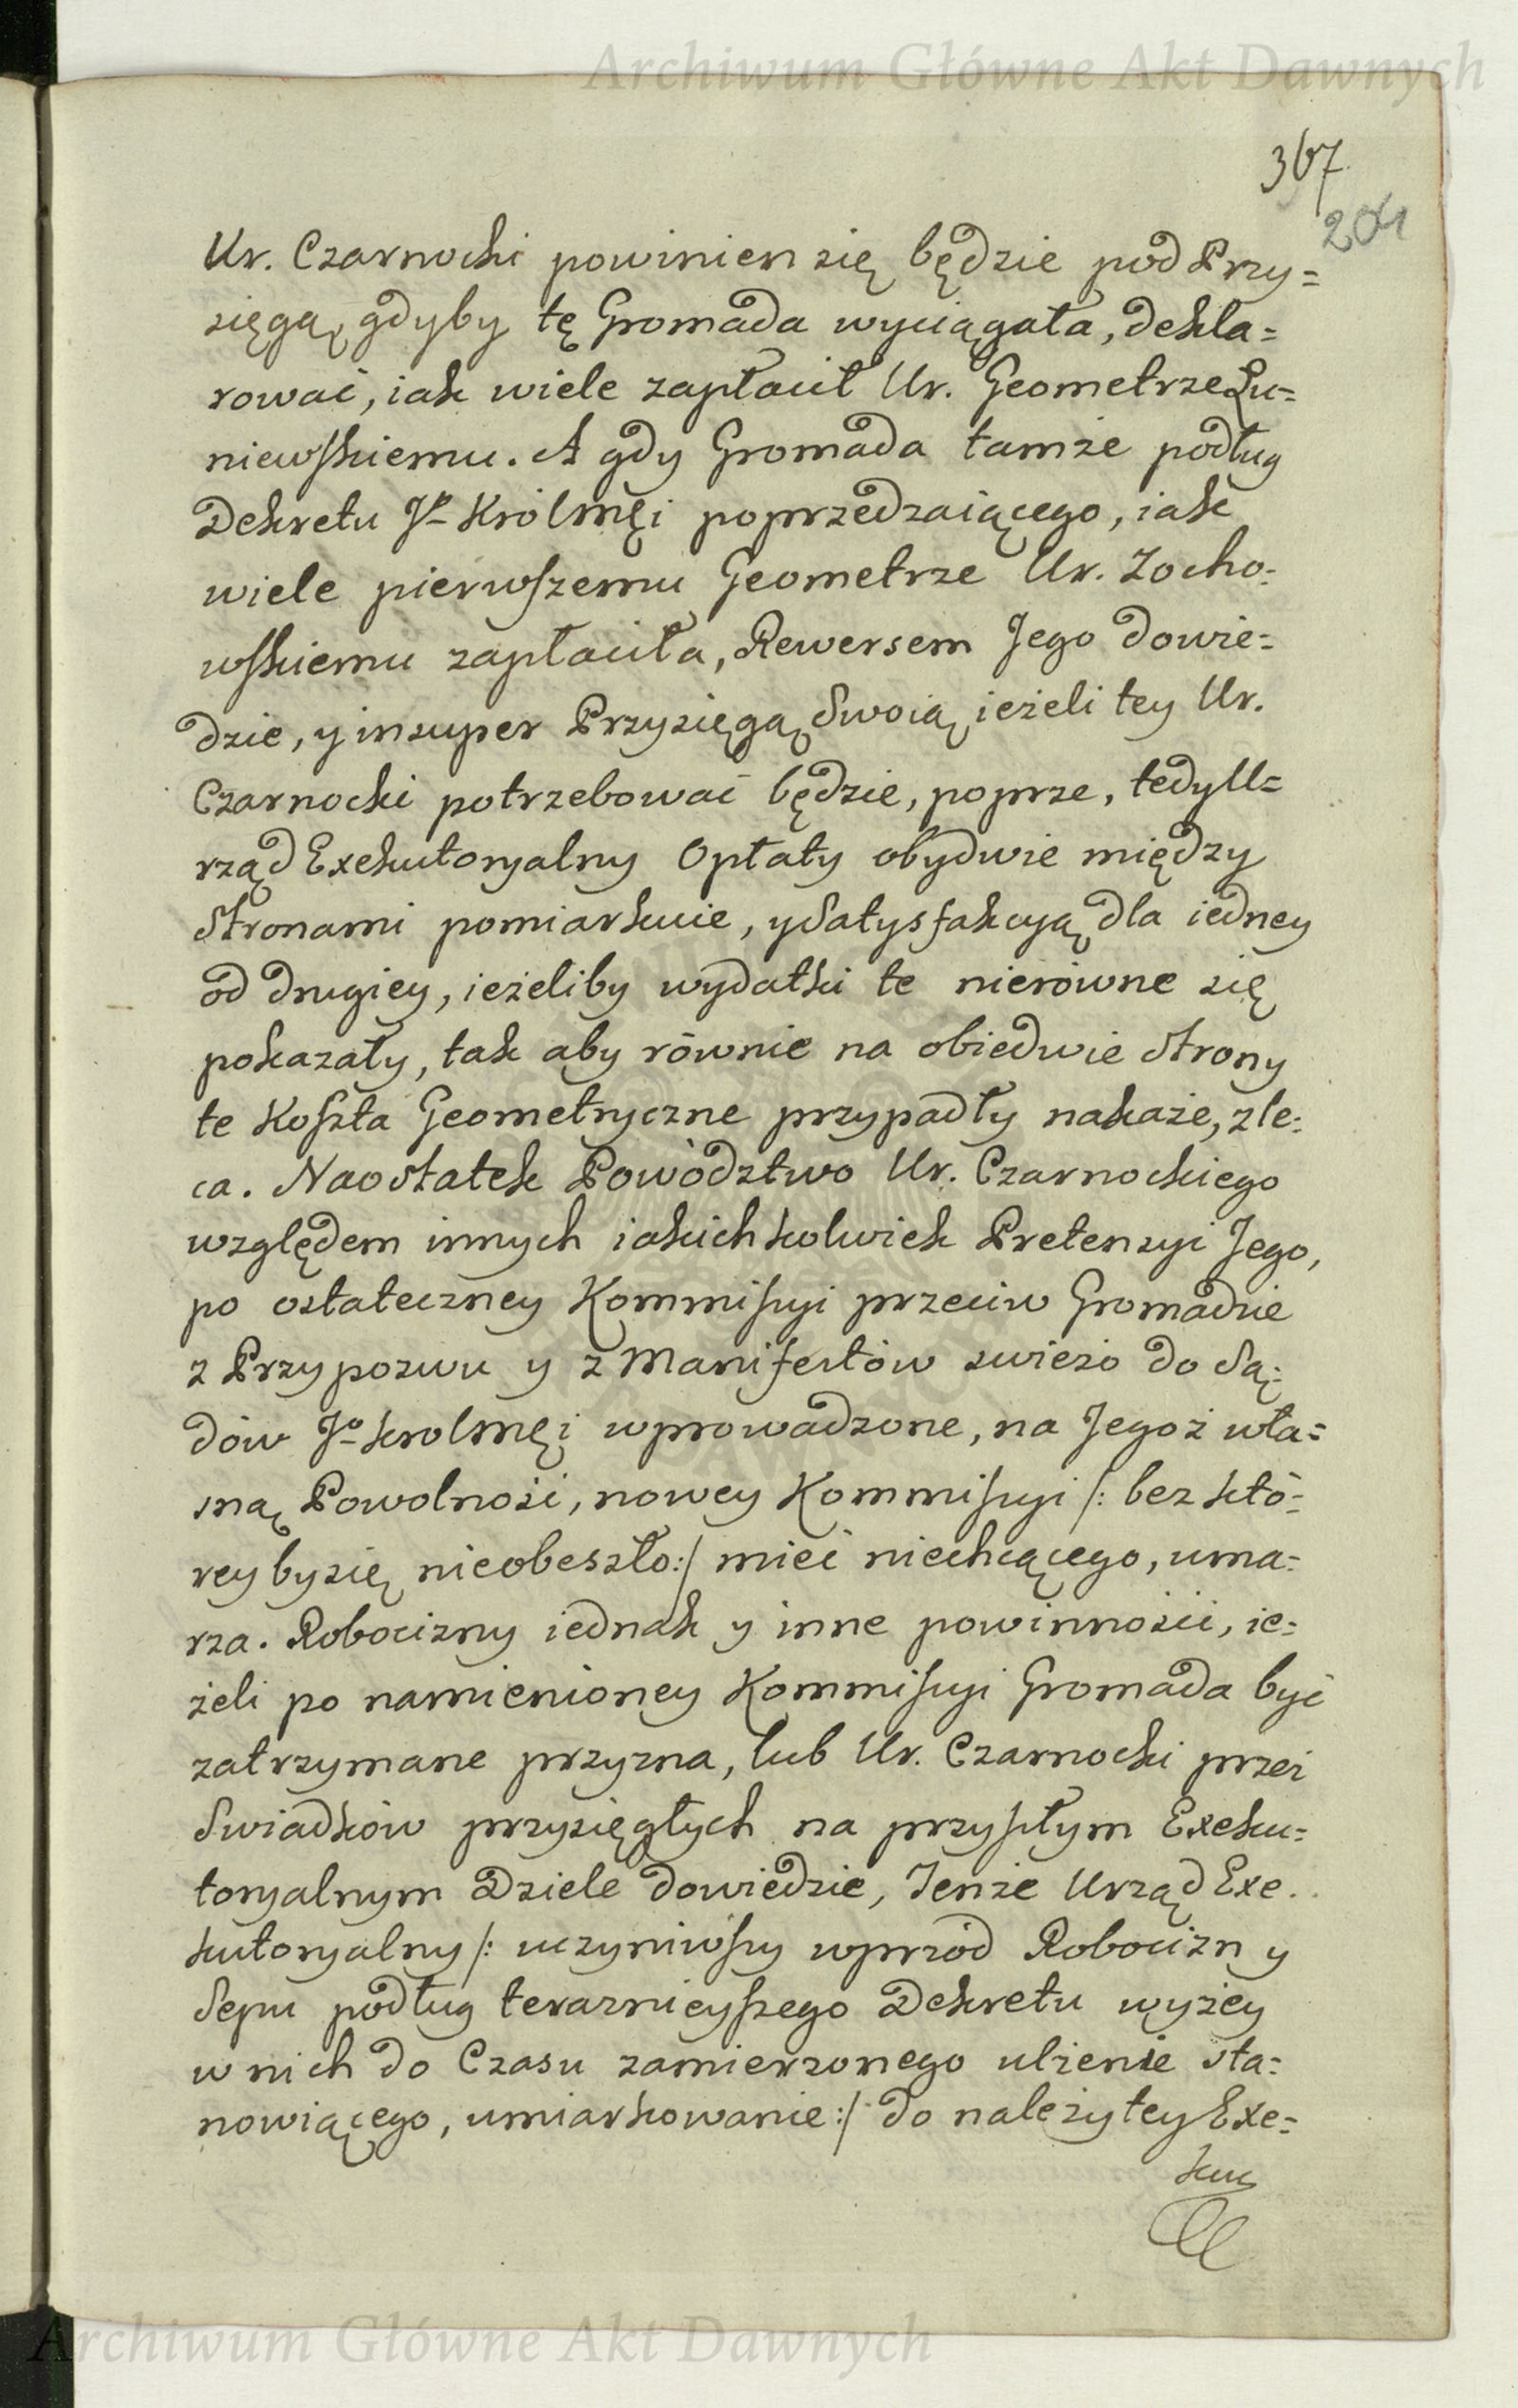 Archiwum Główne Akt Dawnych
367
204
Ur. Czarnocki powinien się będzie pod Przy=
sięgą, gdyby tę Gromada wyciągała, dekla=
rować, iak wiele zapłacił Ur. Geometrze Łu=
niewskiemu. A gdy Gromada tamże podług
Dekretu Jº Królmći poprzedzaiącego, iak
wiele pierwszemu Geometrze Ur. Zocho=
wskiemu zapłaciła, Rewersem Jego dowie=
dzie, y insuper Przysięgą Swoią ieżeli tey Ur.
Czarnocki potrzebować będzie, poprze, tedy U=
rząd Exekutoryalny Opłaty obydwie między
Stronami pomiarkuie, y Satysfakcyą dla iedney
od drugiey, ieżeliby wydatki te nierówne się
pokazały, tak aby równie na obiedwie Strony
te Koszta Geometryczne przypadły nakaże, zle=
ca. Naostatek Powództwo Ur. Czarnockiego
względem innych iakichkolwiek Pretensyi Jego,
po ostateczney Kommissyi przeciw Gromadzie
z Przypozwu y z Manifestów swieżo do Są=
dów Jº Krolmći wprowadzone, na Jegoż wła=
sną Powolność, nowey Kommissyi /: bez któ=
rey by się nieobeszło :/ mieć niechcącego, uma=
rza. Robocizny iednak y inne powinności, ie=
żeli po namienioney Kommissyi Gromada być
zatrzymane przyzna, lub Ur. Czarnocki przez
Swiadków przysięgłych na przyszłym Exeku=
toryalnym Dziele dowiedzie, Tenże Urząd Exe..
kutoryalny /: uczyniwszy wprzód Robocizn y
Sepu podług teraznieyszego Dekretu wyżey
w nich do Czasu zamierzonego ulżenie sta=
nowiącego, umiarkowanie :/ do należytey Exe=
kuc
Archiwum Główne Akt Dawnych